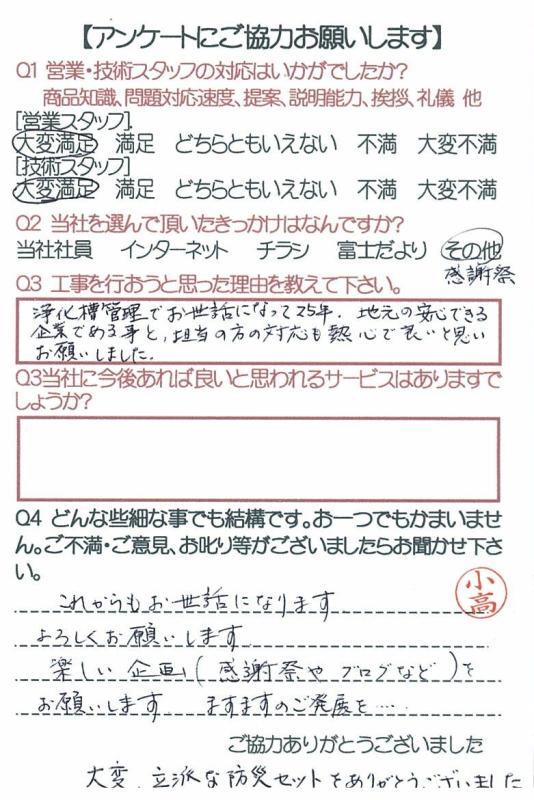 【アンケートにご協力お願いします】
Q1 営業・技術スタッフの対応はいかがでしたか?
商品知識、問題対応速度、提案、説明能力、挨拶、礼儀 他
[営業スタッフ]
大変満足 満足 どちらともいえない 不満 大変不満
[技術スタッフ]
大変満足 満足 どちらともいえない 不満 大変不満
Q2 当社を選んで頂いたきっかけはなんですか?
当社社員 インターネット チラシ 富士だより その他
感謝祭
Q3 工事を行おうと思った理由を教えて下さい。
浄化槽管理でお世話になって25年. 地元の安心できる
企業である事と,担当の方の対応も熱心で良いと思い
お願いしました.
Q3当社に今後あれば良いと思われるサービスはありますで
しょうか?
Q4 どんな些細な事でも結構です。お一つでもかまいませ
ん。ご不満・ご意見、お叱り等がございましたらお聞かせ下さ
い。
小高
これからもお世話になります
よろしくお願いします
楽しい企画(感謝祭やブログなど)を
お願いします ますますのご発展を….
ご協力ありがとうございました
大変、立派な防災セットをありがとうございました